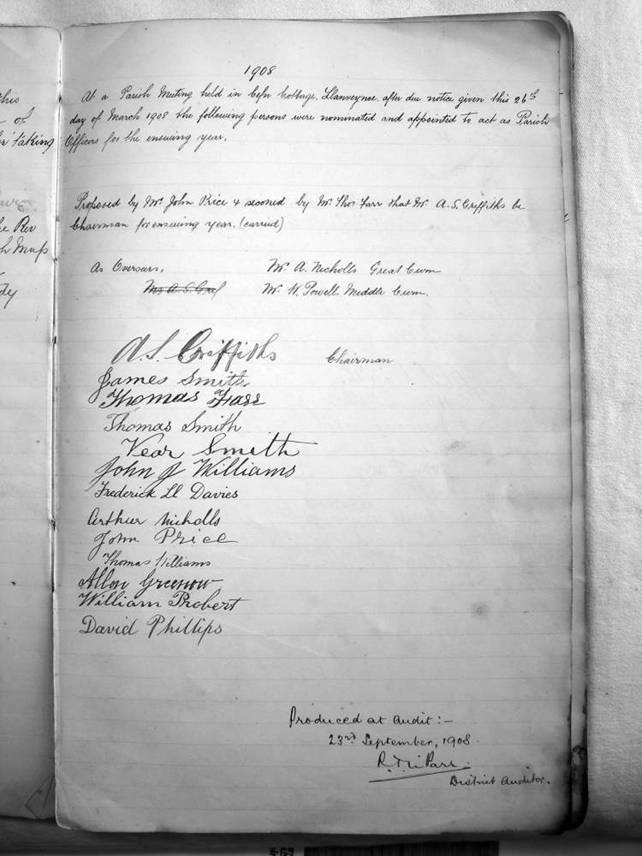 1908
At a Parish Meeting held in Cefn Cottage, Llanveynoe, after due notice given this 26th
day of March 1908 the following persons were nominated and appointed to act as Parish
Officers for the ensuing year.
Proposed by Mr John Price & seconed by Mr Thos Farr that Mr A. S. Griffiths be
Chairman for ensuing year. (carried)
As Overseers, Mr A. Nicholls Great Cwm
Mr W. Powell Middle Cwm.
A. S. Griffiths Chairman
James Smith
Thomas Farr
Thomas Smith
Vear Smith
John J Williams
Frederick Ll Davies
Arthur Nicholls
John Price
Thomas Williams
Allon Greenow
William Probert
David Phillips
Produced at Audit:-
23rd September, 1908.
District Auditor.
his
of
taking
he Rev
h Map